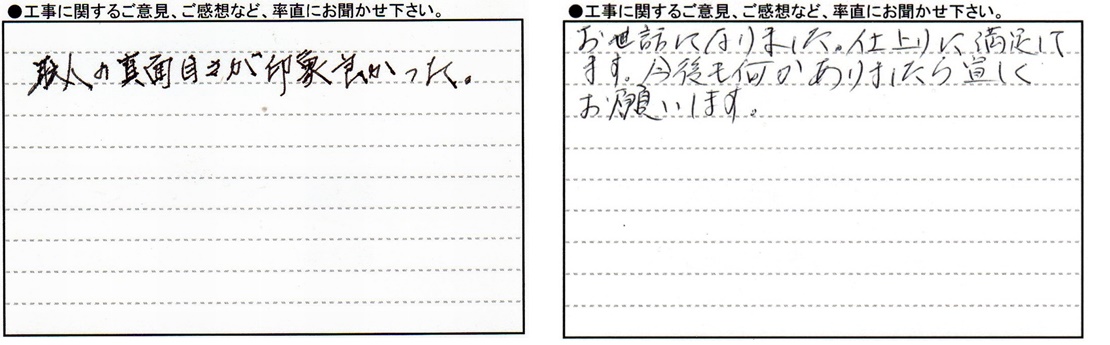 ●工事に関するご意見、ご感想など、率直にお聞かせ下さい。
職人の真面目さが印象良かった。
●工事に関するご意見、ご感想など、率直にお聞かせ下さい。
お世話になりました。仕上りに満足して
ます。今後も何かありましたら宜しく
お願いします。